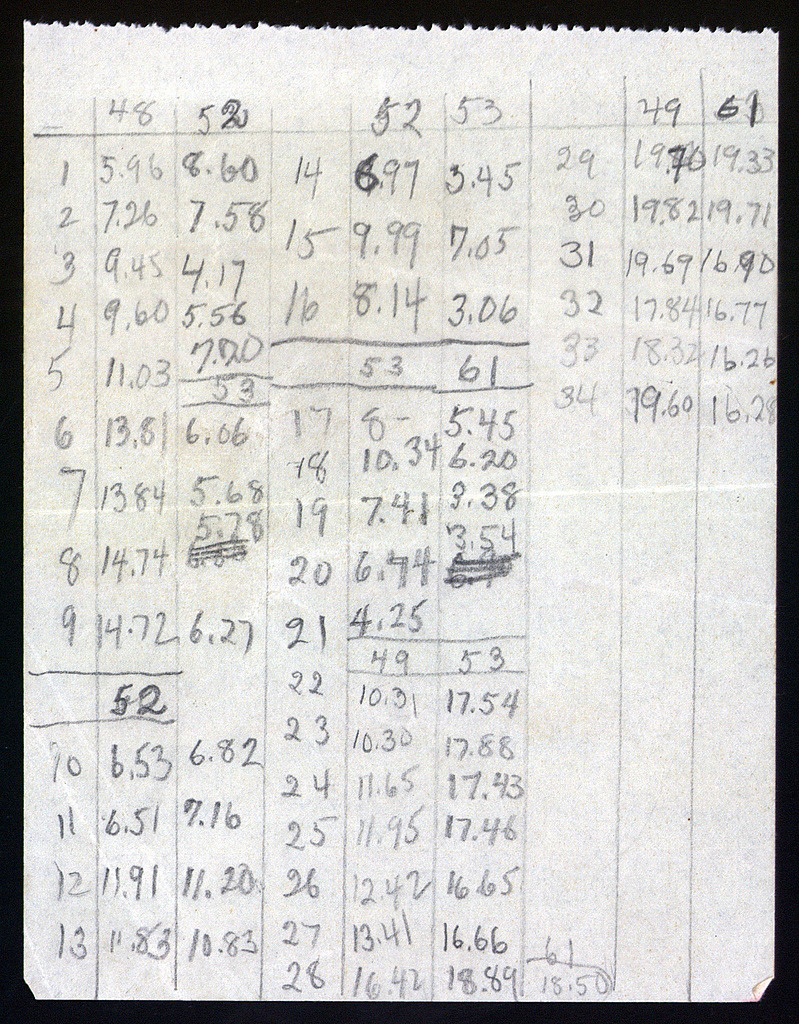 48 52
1 5.96 8.60
2 7.26 7.58
3 9.45 4.17
4 9.60 5.56
5 11.03 7.20
53
6 13.81 6.06
7 13.84 5.68
5.78
8 14.74
9 14.72 6.27
52
10 6.53 6.82
11 6.51 7.16
12 11.91 11.20
13 11.83 10.83
52 53
14 6.97 3.45
15 9.99 7.05
16 8.14 3.06
53 61
17 8- 5.45
18 10.34 6.20
19 7.41 3.38
3.54
20 6.74
21 4.25
49 53
22 10.31 17.54
23 10.30 17.88
24 11.65 17.43
25 11.95 17.46
26 12.42 16.65
27 13.41 16.66
28 16.42 18.89
61
18.50
49 61
29 19.70 19.33
30 19.82 19.71
31 19.69 16.90
32 17.84 16.77
33 18.32 16.26
34 19.60 16.28